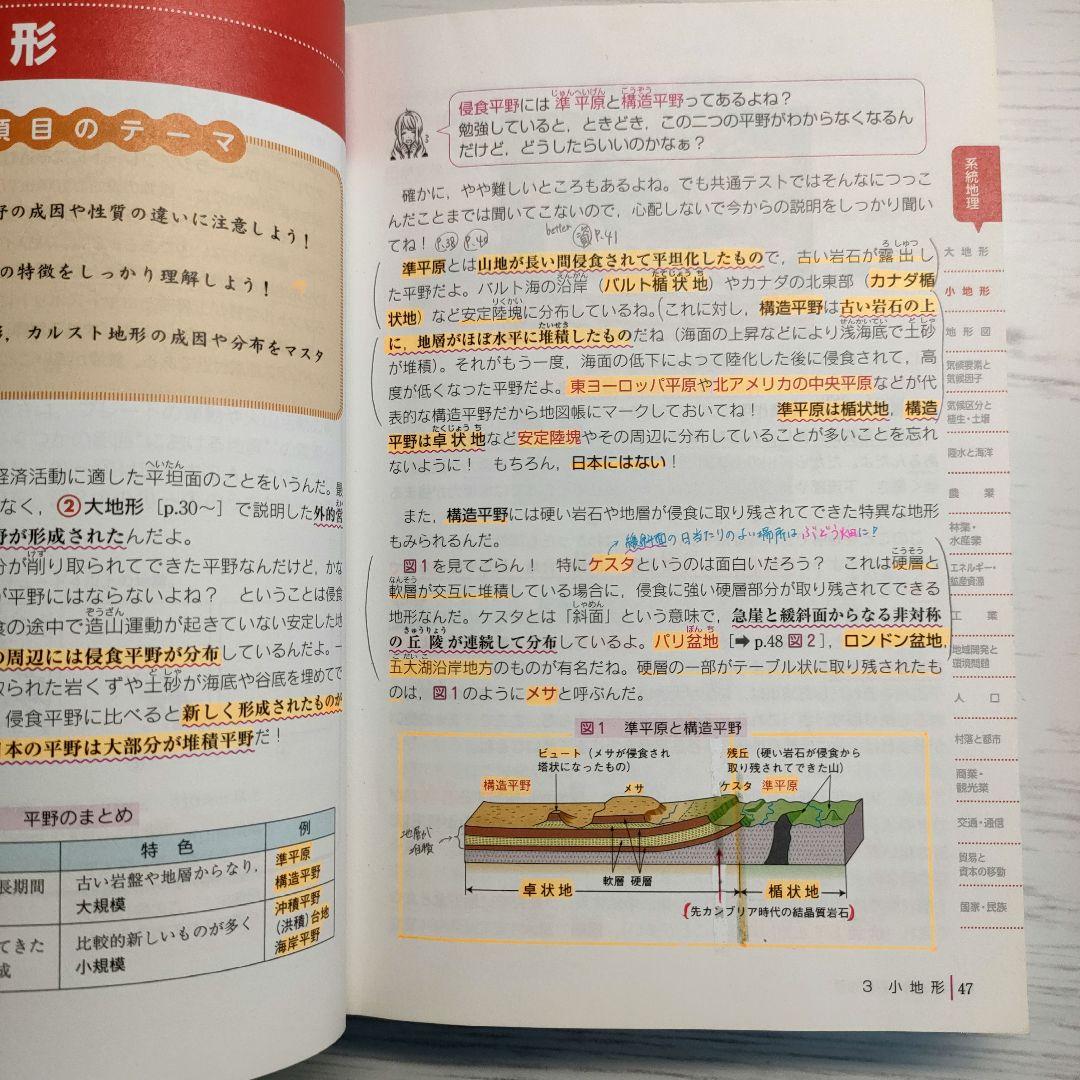 形
項目のテーマ
野の成因や性質の違いに注意しよう！
の特徴をしっかり理解しよう！
カルスト地形の成因や分布をマスタ
経済活動に適した平坦面のことをいうんだ。
へいたん
なく，②大地形［p.30〜］で説明した外的営
野が形成されたんだよ。
分が削り取られてできた平野なんだけど，かな
けず
が平野にはならないよね？　ということは侵食
食の途中で造山運動が起きていない安定した地
ぞうざん
の周辺には侵食平野が分布しているんだよ。一
取られた岩くずや土砂が海底や谷底を埋めてで
どしゃ
侵食平野に比べると新しく形成されたものが
日本の平野は大部分が堆積平野だ！
平野のまとめ
特色
例
長期間
古い岩盤や地層からなり，
大規模
準平原
構造平野
てきた
成
比較的新しいものが多く
小規模
沖積平野
(洪積)台地
海岸平野
じゅんへいげん
こうぞう
侵食平野には準平原と構造平野ってあるよね？
勉強していると，ときどき，この二つの平野がわからなくなるん
だけど，どうしたらいいのかなぁ？
確かに，やや難しいところもあるよね。でも共通テストではそんなにつっこ
んだことまでは聞いてこないので，心配しないで今からの説明をしっかり聞い
てね！
P.38
P.40
better
資
P.41
ろしゅつ
準平原とは山地が長い間侵食されて平坦化したもので，古い岩石が露出し
えんがん
たてじょうち
た平野だよ。バルト海の沿岸（バルト楯状地）やカナダの北東部（カナダ楯
りくかい
状地）など安定陸塊に分布しているね。これに対し，構造平野は古い岩石の上
たいせき
せんかいてい
どしゃ
に，地層がほぼ水平に堆積したものだね（海面の上昇などにより浅海底で土砂
が堆積）。それがもう一度，海面の低下によって陸化した後に侵食されて，高
度が低くなった平野だよ。東ヨーロッパ平原や北アメリカの中央平原などが代
表的な構造平野だから地図帳にマークしておいてね！　準平原は楯状地，構造
たくじょうち
平野は卓状地など安定陸塊やその周辺に分布していることが多いことを忘れ
ないように！　もちろん，日本にはない！
また，構造平野には硬い岩石や地層が侵食に取り残されてできた特異な地形
もみられるんだ。
緩斜面の日当たりのよい場所はぶどう畑に！
こうそう
図1を見てごらん！　特にケスタというのは面白いだろう？　これは硬層と
なんそう
軟層が交互に堆積している場合に，侵食に強い硬層部分が取り残されてできる
しゃめん
地形なんだ。ケスタとは「斜面」という意味で，急崖と緩斜面からなる非対称
きゅうりょう
ぼんち
の丘陵が連続して分布しているよ。パリ盆地［➡p.48 図2］，ロンドン盆地，
ごだいこ
五大湖沿岸地方のものが有名だね。硬層の一部がテーブル状に取り残されたも
のは，図1のようにメサと呼ぶんだ。
図1　準平原と構造平野
ビュート（メサが侵食され
塔状になったもの）
残丘（硬い岩石が侵食から
取り残されてできた山）
構造平野
メサ
ケスタ
準平原
地層が
堆積
軟層
硬層
卓状地
楯状地
(先カンブリア時代の結晶質岩石)
3　小地形
47
系統地理
大地形
小地形
地形図
気候要素と
気候因子
気候区分と
植生・土壌
陸水と海洋
農業
林業・
水産業
エネルギー・
鉱産資源
工業
地域開発と
環境問題
人口
村落と都市
商業・
観光業
交通・通信
貿易と
資本の移動
国家・民族